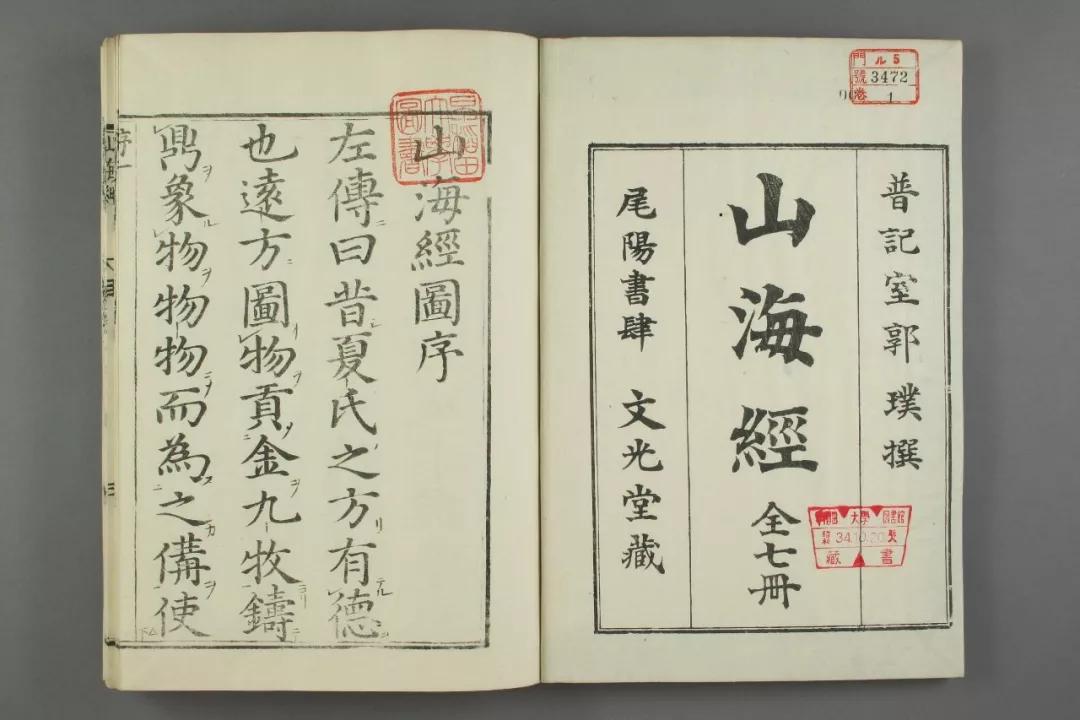 門 ル 5
號 3472
卷 1
普記室郭璞撰
山海經 全七冊
尾陽書肆 文光堂藏
大學
34.10.20
藏書
山海經圖序
左傳曰昔夏氏之方有德
也遠方圖物貢金九牧鑄
鼎象物物物而為之備使
序一